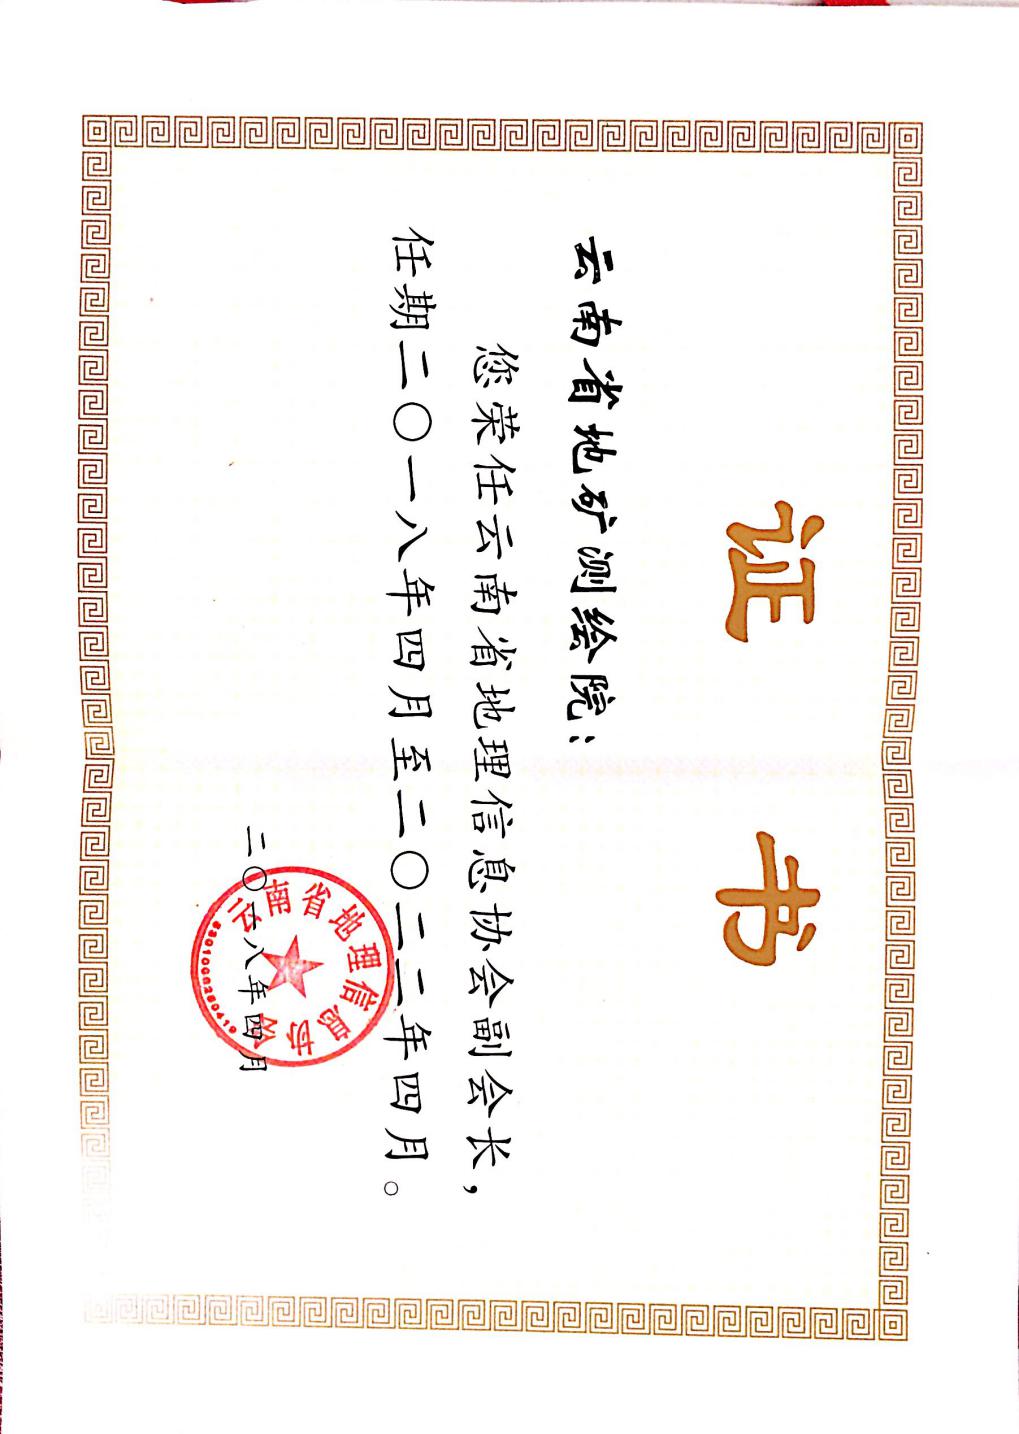 证书
云南省地矿测绘院：
您荣任云南省地理信息协会副会长，
任期二〇一八年四月至二〇二二年四月。
云南省地理信息协会
二〇一八年四月